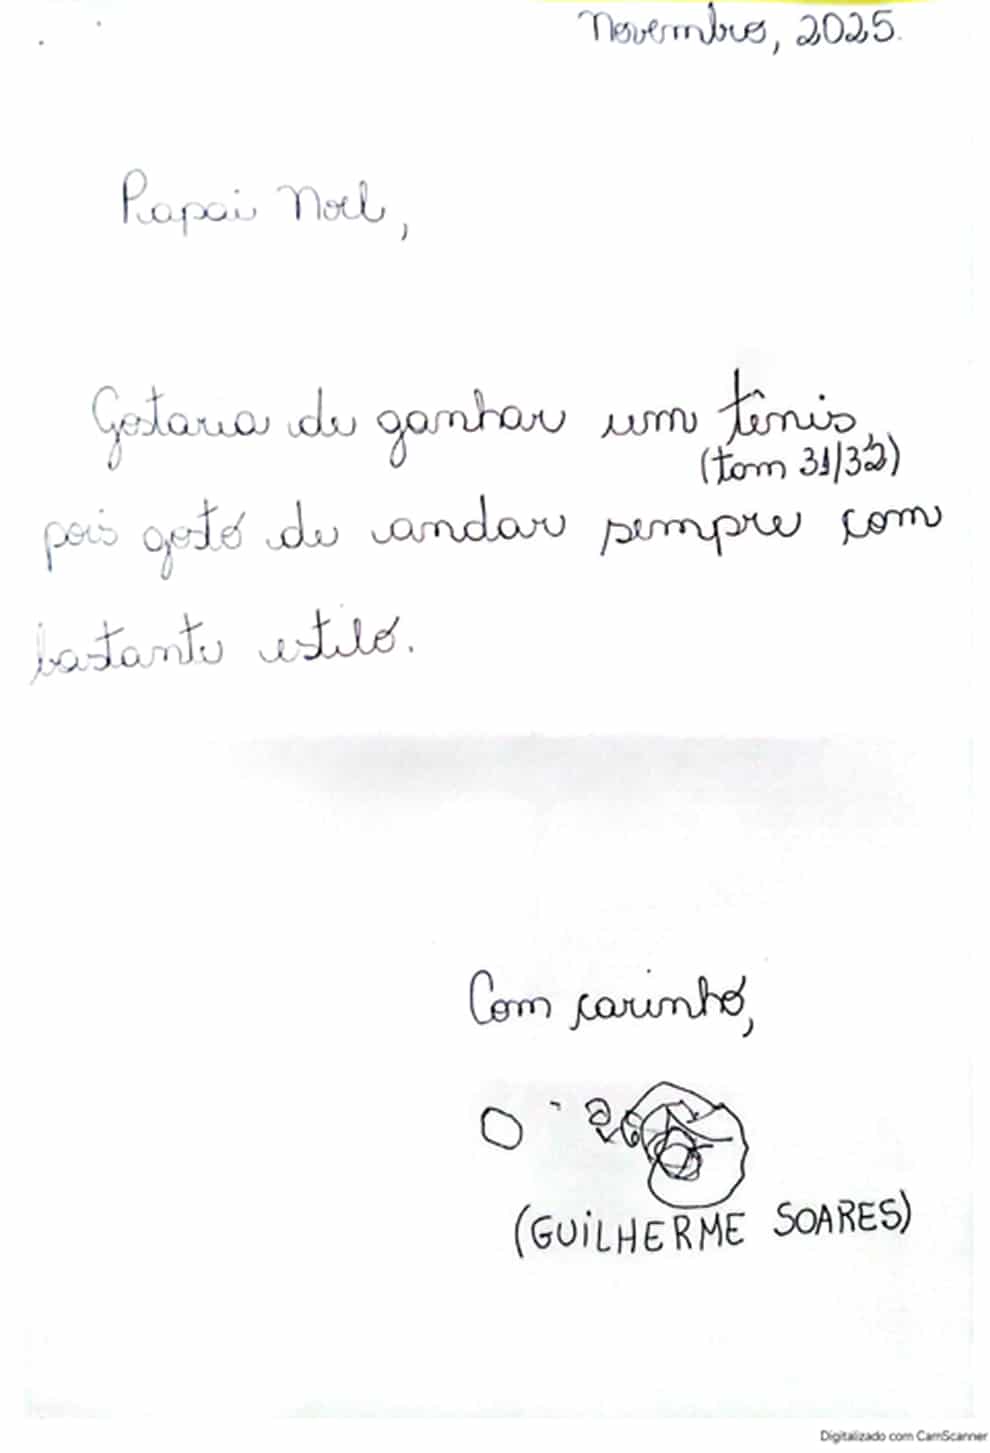 Novembro, 2025.
Papai Noel,
Gostaria de ganhar um tênis,
(tam 31/32)
pois gosto de andar sempre com
bastante estilo.
Com carinho,
(GUILHERME SOARES)
Digitalizado com CamScanner